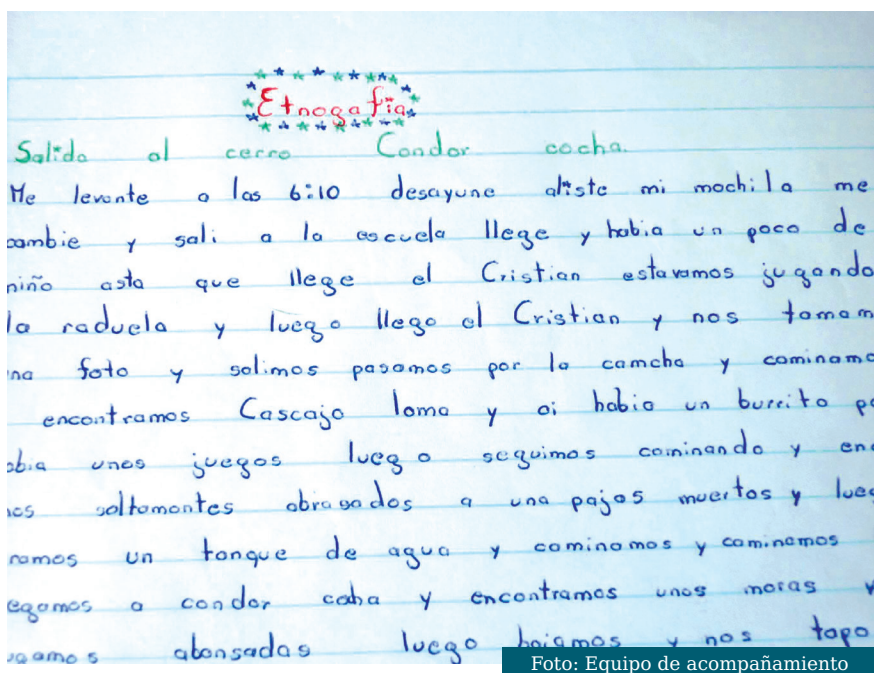 Etnogafia
Salida al cerro Condor cocha.
Me levante a las 6:10 desayune aliste mi mochila me
cambie y sali a la escuela llege y habia un poco de
niño asta que llege el Cristian estavamos jugando
la raduela y luego llego el Cristian y nos tomam
na foto y salimos pasamos por la camcha y caminamo
encontramos Cascajo loma y oi habia un burrito pa
abia unos juegos luego seguimos caminando y enc
nos saltamontes abrasados a una pajas muertos y lueg
ramos un tanque de agua y caminamos y caminamos
egamos a condor coha y encontramos unos moras y
ugamos abansadas luego bajamos y nos topo
Foto: Equipo de acompañamiento